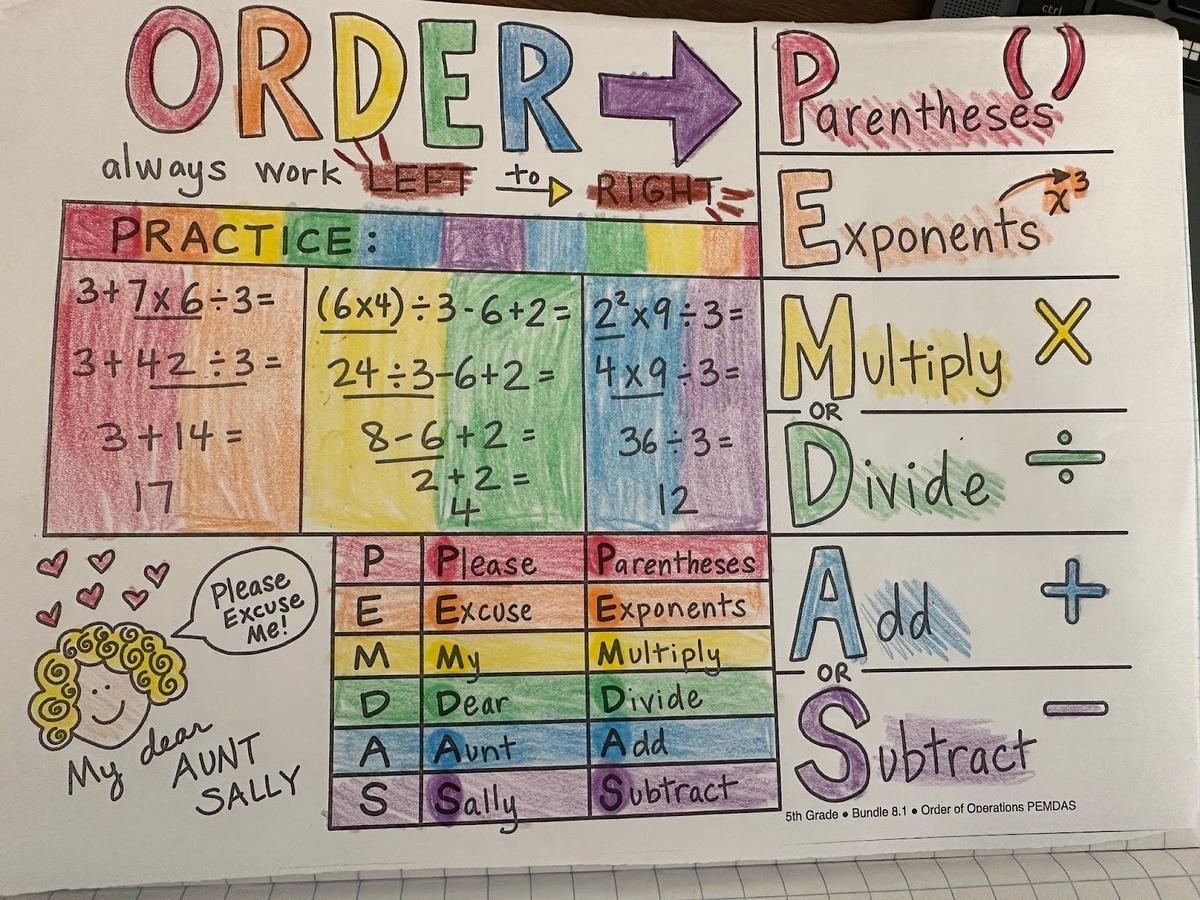 ORDER
always work LEFT to RIGHT
PRACTICE:
3+7×6÷3=
3+42÷3=
3+14=
17
(6×4)÷3-6+2=
24÷3-6+2=
8-6+2=
2+2=
4
2²×9÷3=
4×9÷3=
36÷3=
12
Please
Excuse
Me!
My dear
AUNT
SALLY
P Please Parentheses
E Excuse Exponents
M My Multiply
D Dear Divide
A Aunt Add
S Sally Subtract
Parentheses ()
Exponents x³
Multiply ×
OR
Divide ÷
Add +
OR
Subtract −
5th Grade • Bundle 8.1 • Order of Operations PEMDAS
ctrl